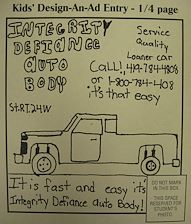 Kids' Design-An-Ad Entry - 1/4 page
INTEGRITY
DEFIANCE
AUTO
BODY
St.RT.24W
Service
Quality
Loaner car
Call!, 419-784-4808
or 1-800-784-1408
it's that easy
It is fast and easy it's
Integrity Defiance auto Body!
DO NOT MARK
IN THIS BOX
THIS SPACE
RESERVED FOR
STUDENT'S
PHOTO